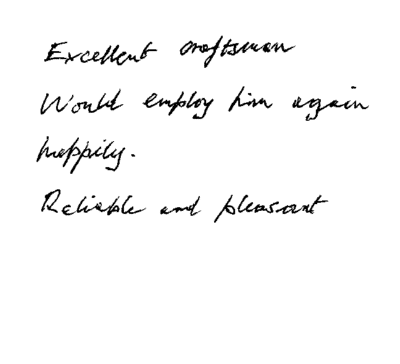 Excellent craftsman
Would employ him again
happily.
Reliable and pleasant